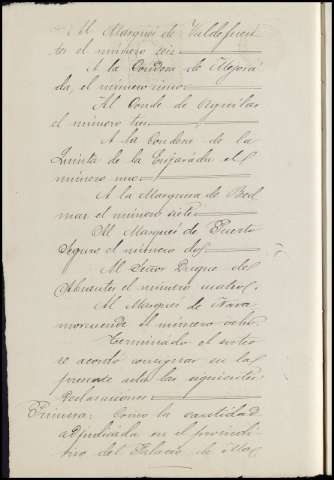 Al Marqués de Valdefuen-
tes el número seis
A la Condesa de Mejora-
da, el número cinco
Al Conde de Aguilar
el número tres
A la Condesa de la
Quinta de la Enjarada el
número uno
A la Marquesa de Bed-
mar el número siete
Al Marqués de Puerto
Seguro el número dos
Al Señor Duque de
Abrantes el número cuatro.
Al Marqués de Nava-
morcuende el número ocho.
Terminado el sorteo
se acordó consignar en la
presente acta las siguientes
declaraciones
Primera: Como la cantidad
adjudicada en el
del Palacio de